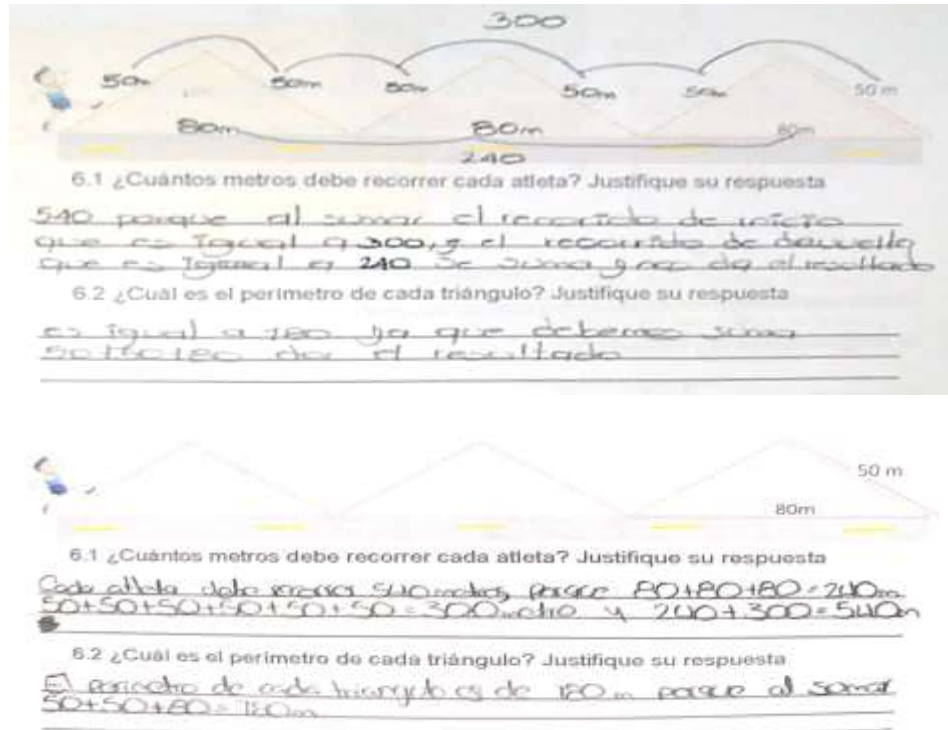 300
50m 50m 50m 50m 50m 50 m
80m 80m 80m
240
6.1 ¿Cuántos metros debe recorrer cada atleta? Justifique su respuesta
540 porque al sumar el recorrido de inicio
que es Igual a 300, y el recorrido de
que es Igual a 240 se suma y nos da el resultado
6.2 ¿Cuál es el perímetro de cada triángulo? Justifique su respuesta
es igual a 180 ya que debemos suma
da el resultado
50 m
80m
6.1 ¿Cuántos metros debe recorrer cada atleta? Justifique su respuesta
Cada atleta debe 540 metros, porque 80+80+80=240m
50+50+50+50+50+50=300 metro y 240+300=540m
6.2 ¿Cuál es el perímetro de cada triángulo? Justifique su respuesta
El perimetro de cada triangulo es de 180 m porque al sumar
50+50+80=180m